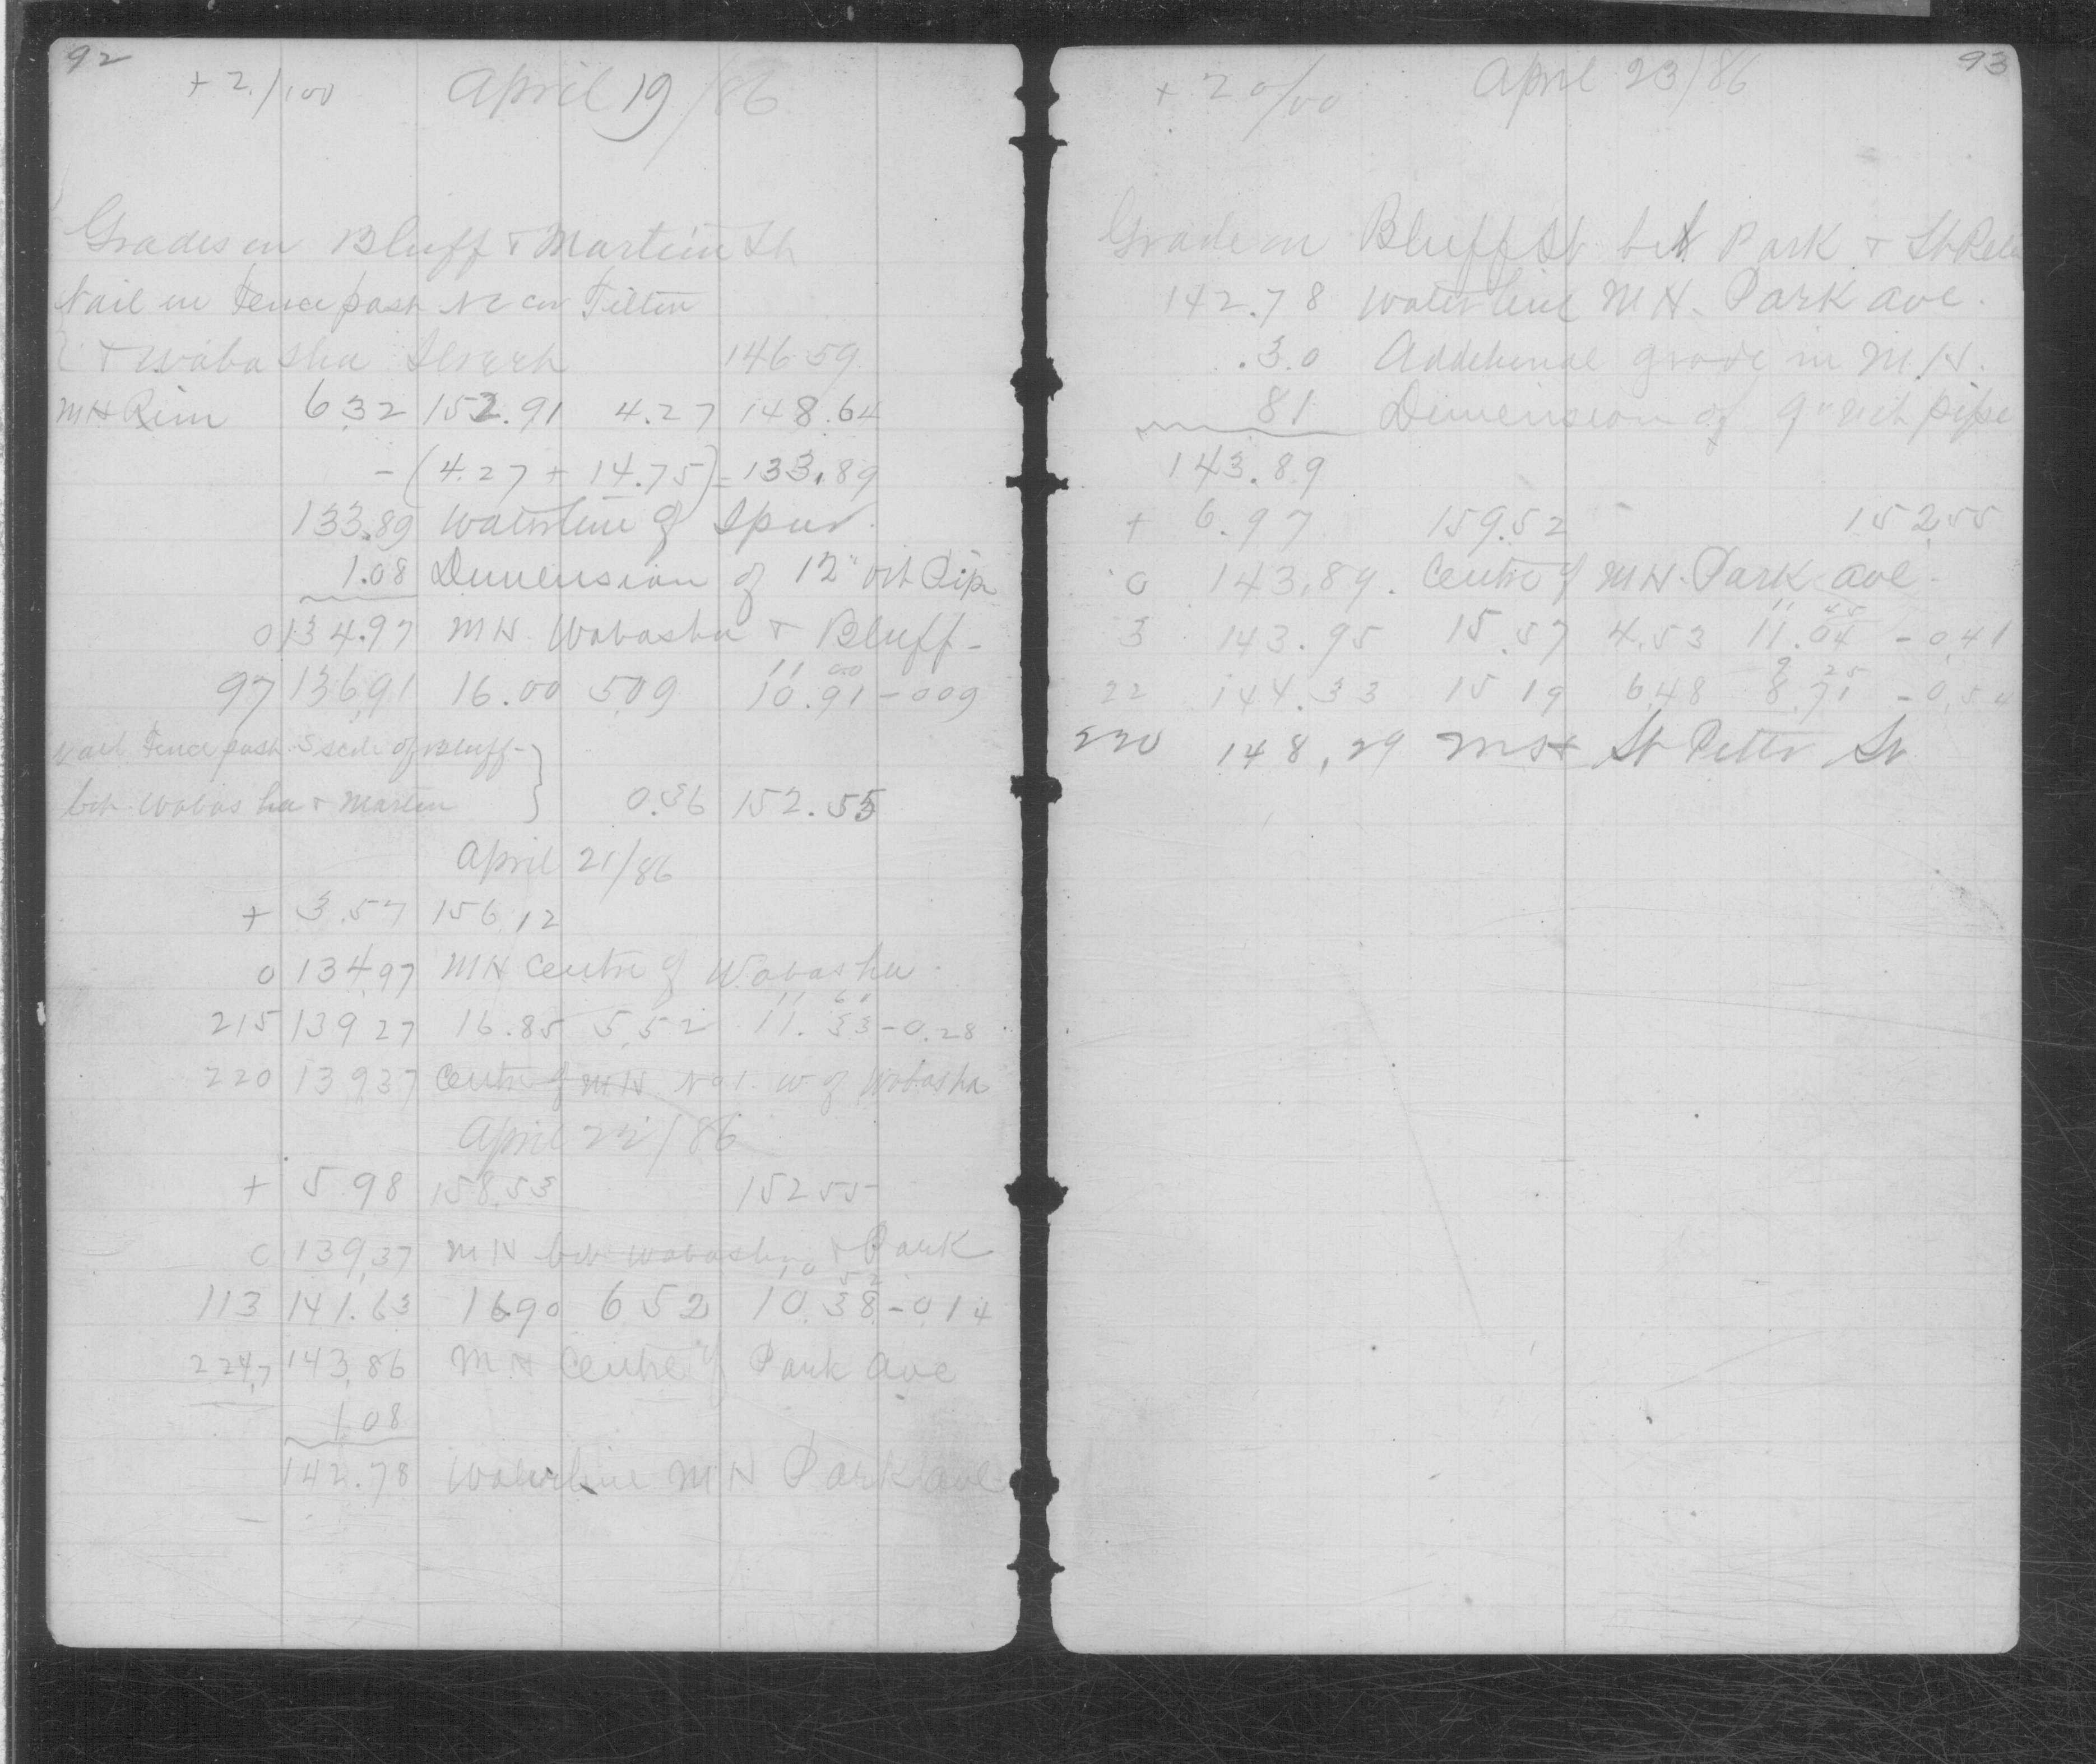 92
+ 2./100 April 19/86
Grades on Bluff & Martin St
Nail in Fence post NE cor Tilton
& Wabasha Streets 146.59
MH Rim 6.32 152.91 4.27 148.64
- (4.27 + 14.75) = 133.89
133.89 Waterline of Spur.
1.08 Dimension of 12" vit Pipe
0 134.97 MH Wabasha & Bluff -
11 00
97 136.91 16.00 5.09 10.91 - 0.09
Nail Fence post S side of Bluff -
bet. Wabasha & Martin 0.36 152.55
April 21/86
+ 3.57 156.12
0 134.97 MH Centre of Wabasha
11 61
215 139.27 16.85 5.52 11.33 - 0.28
220 139.37 Centre of MH No 1. W. of Wabasha
April 22/86
+ 5.98 158.53 152.55
0 139.37 MH bet. Wabasha & Park
10 52
113 141.63 16.90 6.52 10.38 - 0.14
224.7 143.86 MH Centre of Park Ave
1.08
142.78 Waterline MH Park Ave
93
+ 2 0/00 April 23/86
Grade on Bluff St bet Park & St Peter
142.78 Waterline MH. Park Ave.
.30 Additional grade in M.H.
81 Dimension of 9" vit pipe
143.89
+ 6.97 159.52 152.55
0 143.89. Centre of MH. Park Ave.
11 45
3 143.95 15.57 4.53 11.04 - 0.41
9 25
22 144.33 15 19 6.48 8.71 - 0.54
220 148.29 MH St Peter St